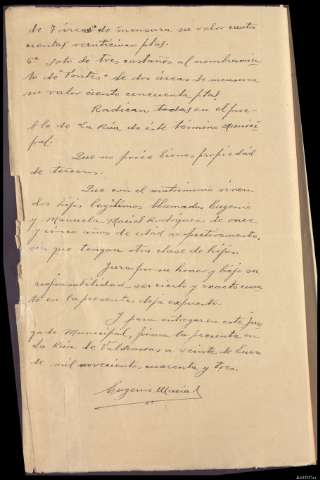 de 7 áreas de mensura su valor cuatro
cientas veinticinco ptas.
6ª soto de tres castaños al nombramien
to de Fontes, de dos áreas de mensura
su valor ciento cincuenta ptas
Radican todas en el pue-
blo de La Rúa de este término Munici
pal.
Que no posée bienes propiedad
de terceros.
Que con el matrimonio viven
dos hijos legítimos llamados Eugenio
y Manuela Macial Rodríguez de once
y cinco años de edad respectivamente,
sin que tengan otra clase de hijos.
Jura por su honor y bajo su
responsabilidad ser cierto y exacto cuan
to en la presente deja expuesto.
Y para entregar en este juz
gado Municipal, firma la presente en
La Rúa de Valdeorras a veinte de Enero
de mil novecientos cuarenta y tres.
Eugenio Macial